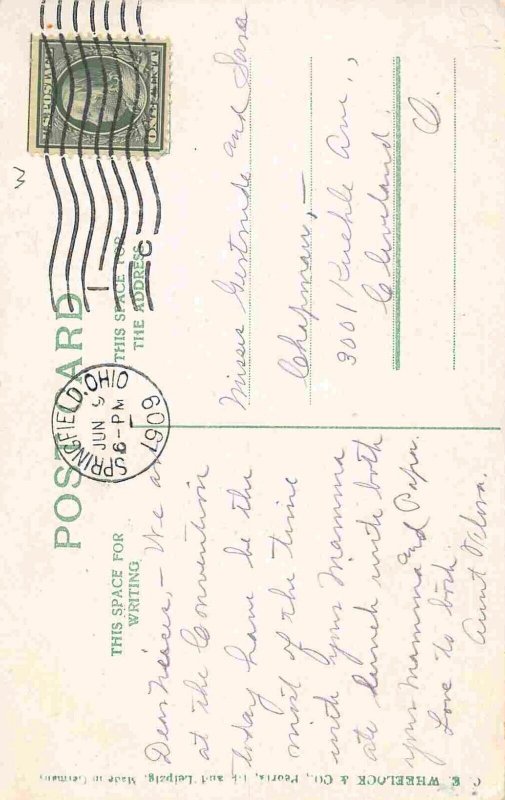 POST CARD
THIS SPACE FOR
WRITING
THIS SPACE FOR
THE ADDRESS
U.S. POSTAGE
ONE CENT
SPRINGFIELD, OHIO
JUN 9
6-PM
1909
Dear Nieces,- We are
at the Convention
today have be the
most of the time
with your Mamma
ate lunch with both
your Mamma and Papa.
Love to both
Aunt
Misses Gertrude and Sara
Chapman,-
3001 Kuehle Ave.,
Cleveland
O.
E. WHEELOCK & CO., Peoria, Ill. and Leipzig. Made in Germany